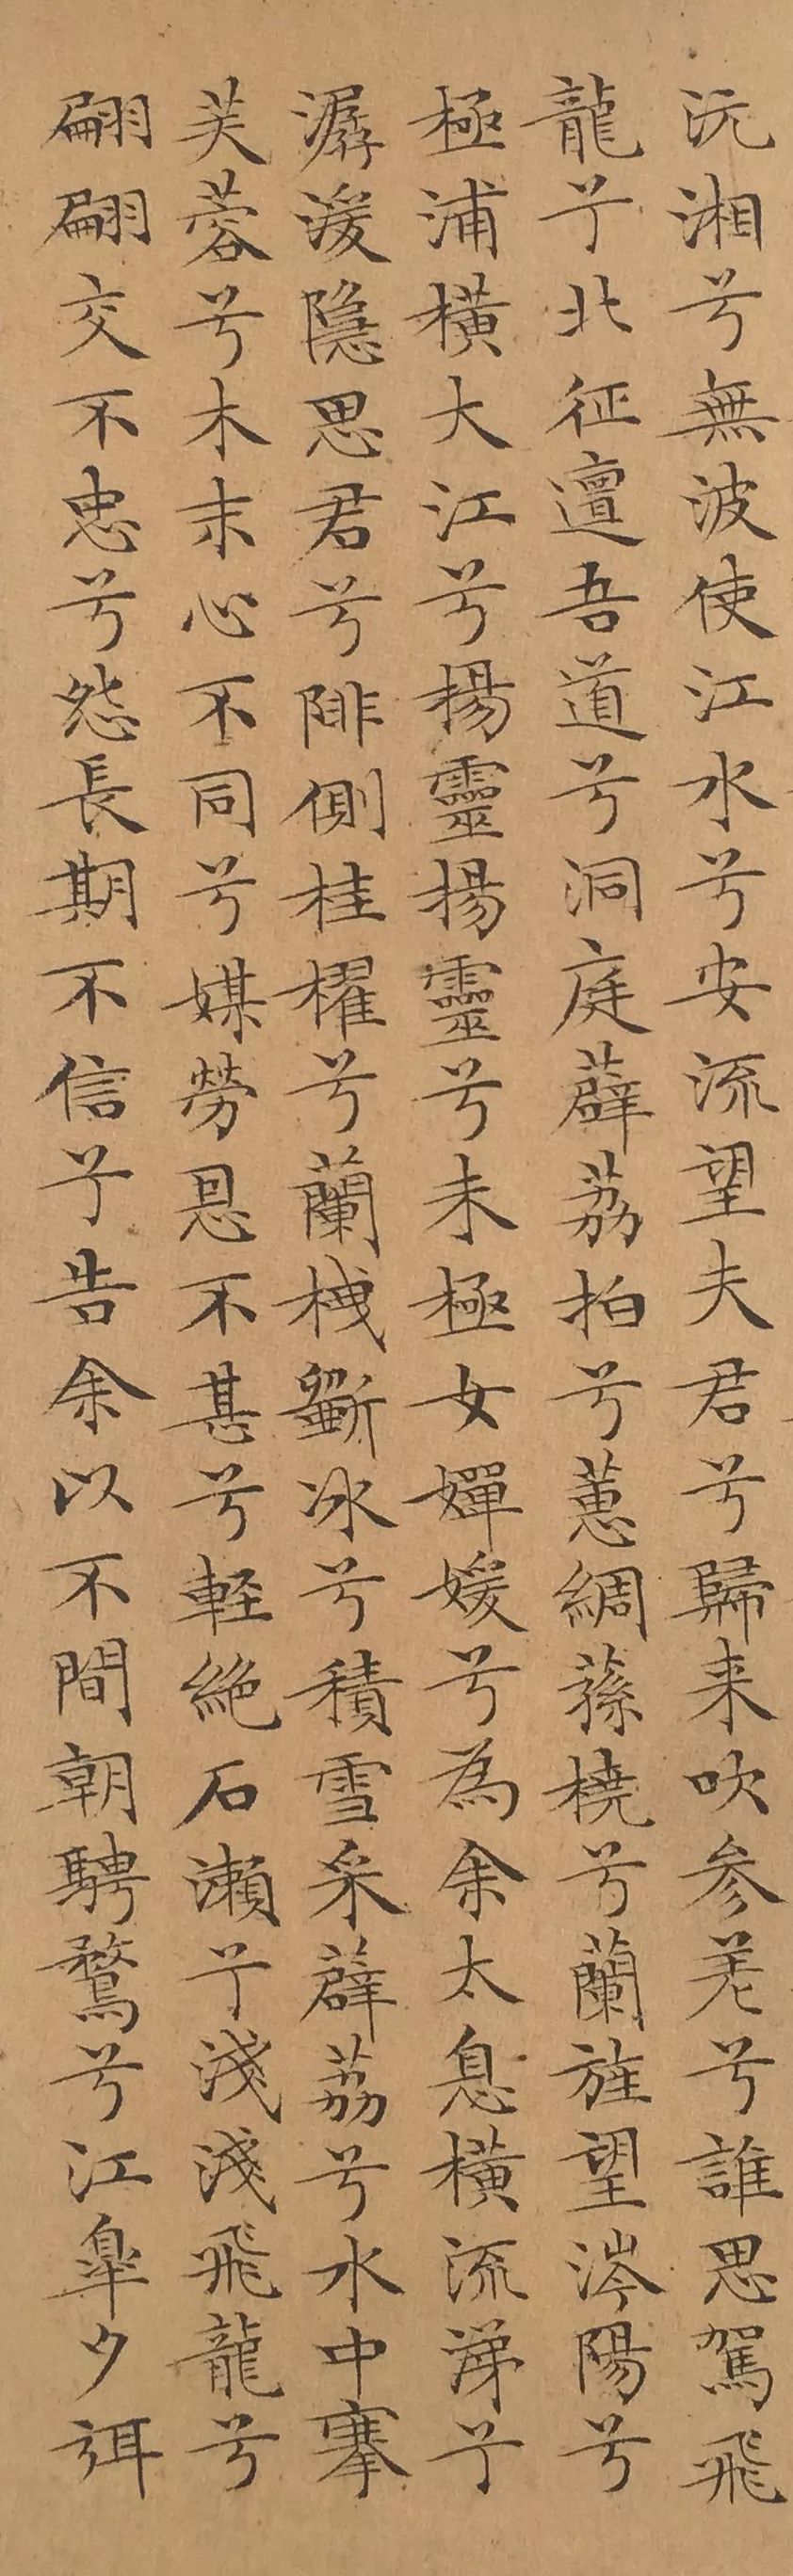 沅湘兮無波使江水兮安流望夫君兮歸来吹参差兮誰思駕飛
龍兮北征邅吾道兮洞庭薜荔拍兮蕙綢蓀橈兮蘭旌望涔陽兮
極浦橫大江兮揚靈揚靈兮未極女嬋媛兮為余太息橫流涕兮
潺湲隱思君兮陫側桂櫂兮蘭栧斵冰兮積雪采薜荔兮水中搴
芙蓉兮木末心不同兮媒勞恩不甚兮軽絶石瀨兮淺淺飛龍兮
翩翩交不忠兮怨長期不信兮告余以不閒朝騁騖兮江皋夕弭